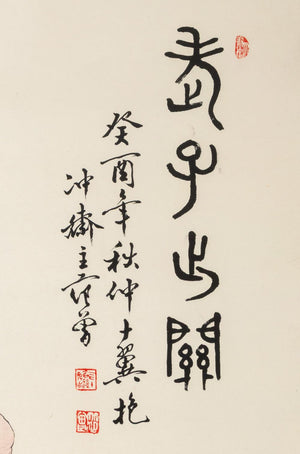 老子出關
癸酉年秋仲十翼抱
冲齋主范曾